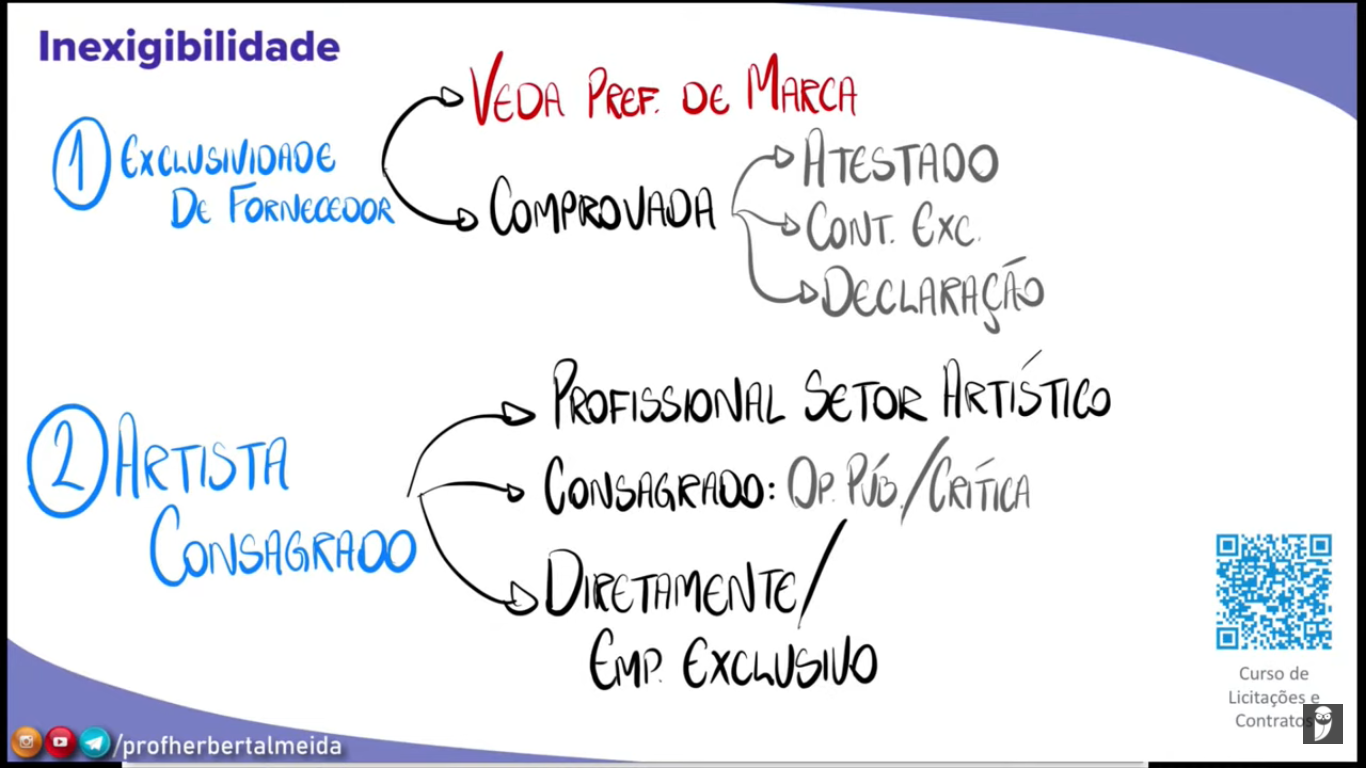 Inexigibilidade
VEDA PREF. DE MARCA
1 EXCLUSIVIDADE
DE FORNECEDOR
COMPROVADA
ATESTADO
CONT. EXC.
DECLARAÇÃO
2 ARTISTA
CONSAGRADO
PROFISSIONAL SETOR ARTÍSTICO
CONSAGRADO: OP. PÚB./CRÍTICA
DIRETAMENTE/
EMP. EXCLUSIVO
Curso de
Licitações e
Contratos
/profherbertalmeida